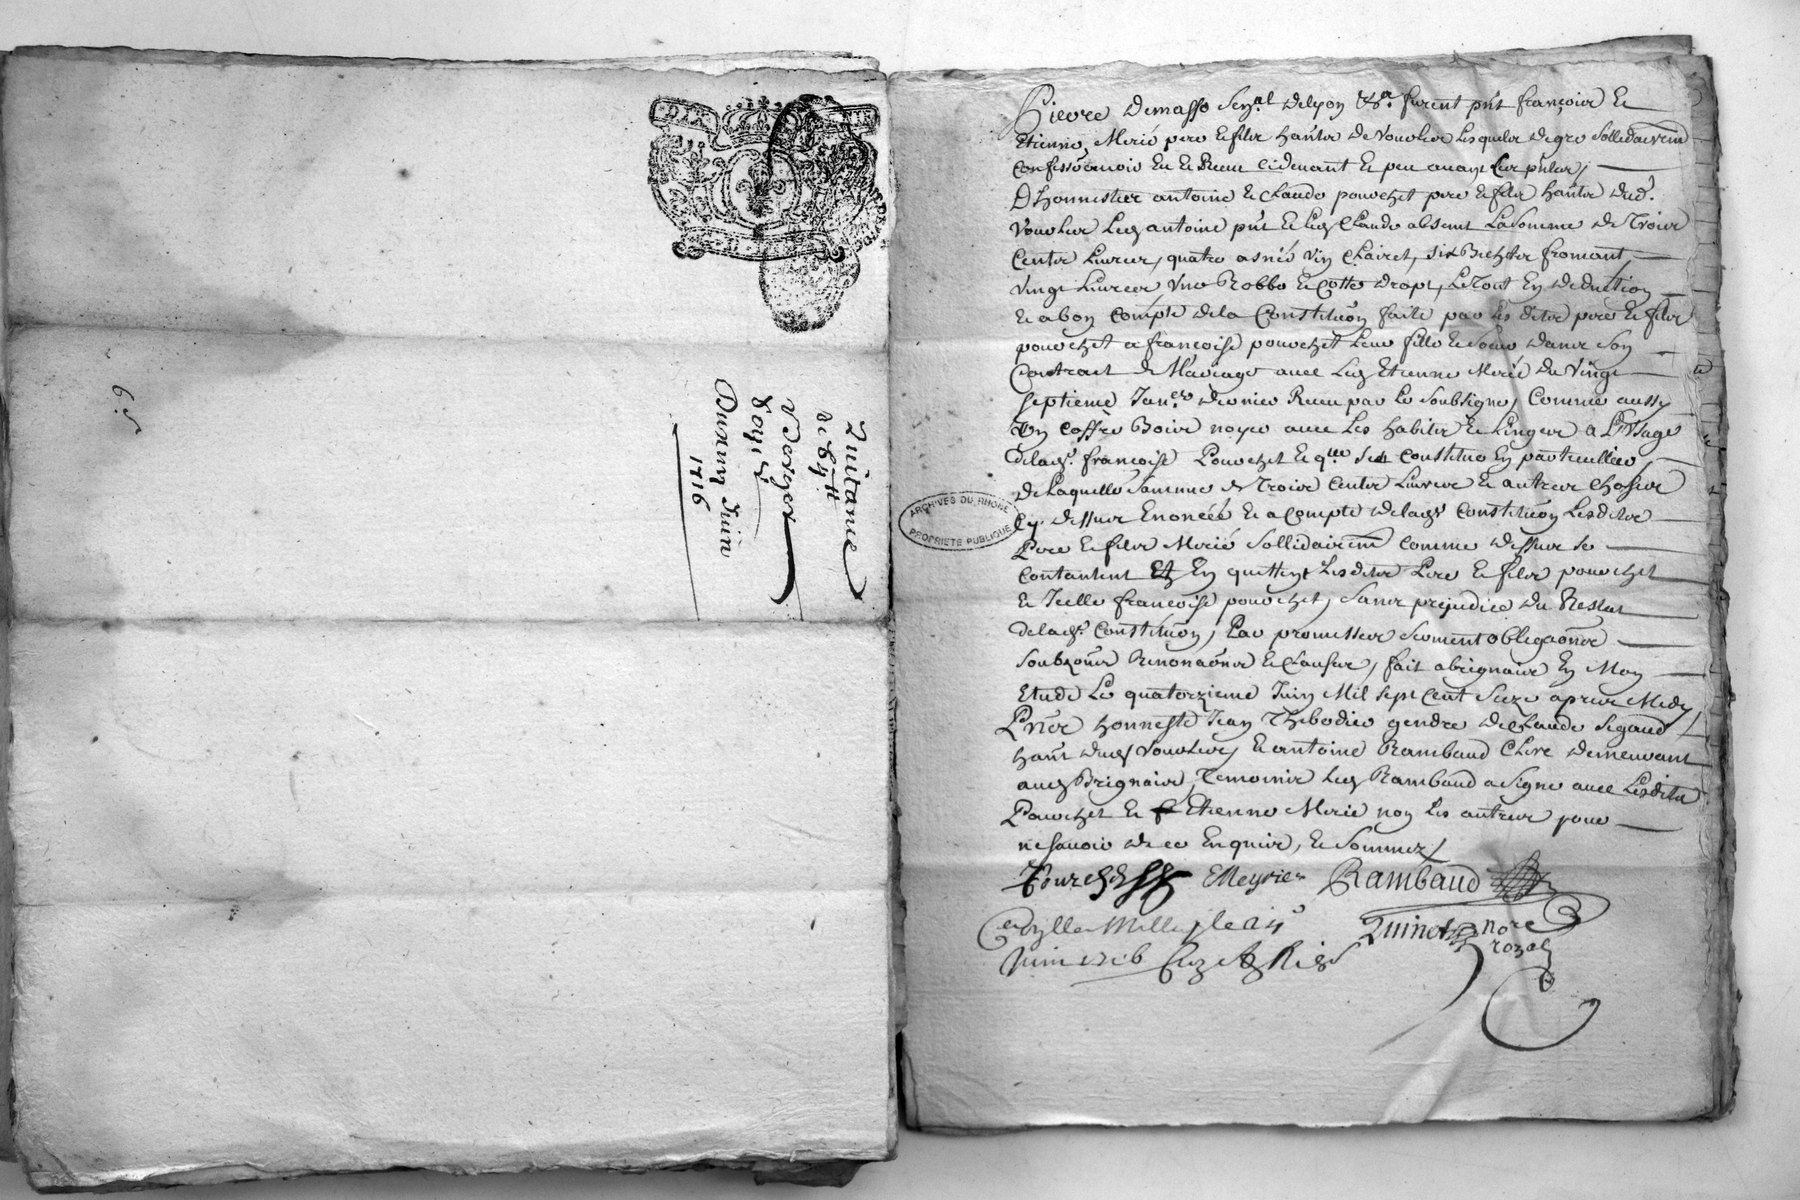 Quitance
de 84 lt
Du xiiij Juin
1716
Pierre Demasso Sen.al delyon &.a furent pnt françois Et
Etienne Merié pere & fils hantz de Vourles Lesquels de gre Sollidairemt
Confessé avoir Eu & Receu Cidevant Et peu avant Ces pntes,
D'honnestes antoine & Claude pourchet pere & fils hantz dud.
Vourles Led antoine pnt & Led Claude absent La Somme de Trois
Cents Livres, quatre asnés Vin Clairet, six Bichets froment,
Vingt Livres Une Robbe & Cotte drapt, Le Tout En deduction
& a bon Compte de la Constitution faite par les dits pere & fils
pourchet a françoise pourchet Leur fille & Soeur dans Son
Contract de Mariage avec Led Etienne Merié du Vingt
septieme Janer dernier Receu par Le Soubsigne, Comme aussy
Un Coffre Bois noyer avec Les habits & Linges a L'Usage
de lad. françoise Pourchet & que s'est Constitué En particullier,
De Laquelle Somme de Trois Cents Livres & autres Choses
Cy dessus Enoncées & a Compte de lad Constitution Lesdits
Pere & fils Merié Sollidairemt Comme dessus se
Contentent Et En quittent Lesdits Pere & fils pourchet
& Icelle françoise pourchet, Sans prejudice du Restat
de lad. Constitution, Par promesses Serment obligaons
Soubzons Renonaons & Clauses, fait a brignais En Mon
Etude Le quatorzieme Juin Mil Sept Cent Seize apres Midy
Pnts honneste Jean Thibodier gendre de Claude Sigaud
hant dud Vourles, & antoine Rambaud Clerc demeurant
aud Brignais, Temoins Led Rambaud a Signé avec Lesdits
Pourchet & Etienne Merié non Les autres pour
ne Savoir de ce Enquis, & Sommez
Pourchet EMeyrier Rambaud
Quinet nore
royal
ARCHIVES DU RHONE
PROPRIETE PUBLIQUE